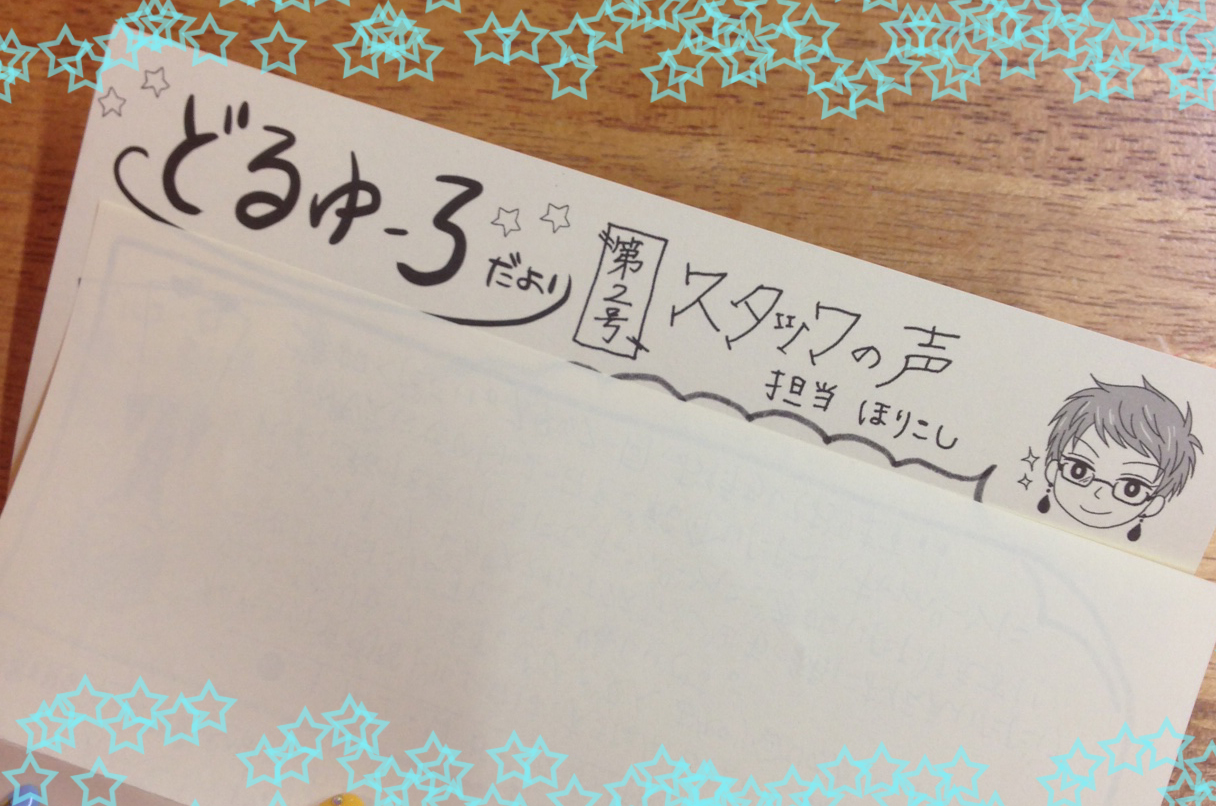 どるゅーろ
だより
第2号
スタッフの声
担当 ほりこし